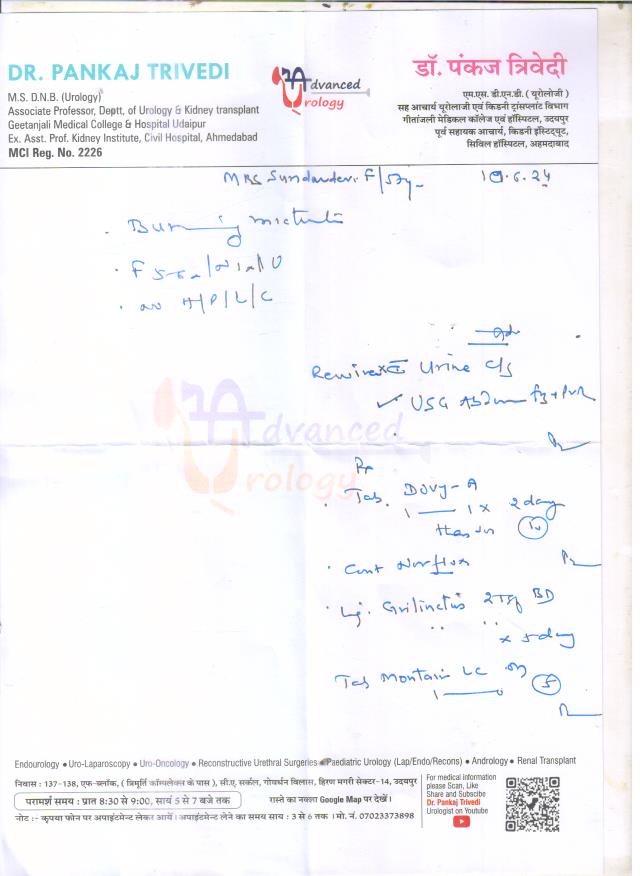 DR. PANKAJ TRIVEDI
M.S. D.N.B. (Urology)
Associate Professor, Deptt. of Urology & Kidney transplant
Geetanjali Medical College & Hospital Udaipur
Ex. Asst. Prof. Kidney Institute, Civil Hospital, Ahmedabad
MCI Reg. No. 2226
Advanced
Urology
डॉ. पंकज त्रिवेदी
एम.एस. डी.एन.बी. (यूरोलोजी)
सह आचार्य यूरोलाजी एवं किडनी ट्रांसप्लांट विभाग
गीतांजली मेडिकल कॉलेज एवं हॉस्पिटल, उदयपुर
पूर्व सहायक आचार्य, किडनी इंस्टिट्यूट,
सिविल हॉस्पिटल, अहमदाबाद
Mrs Sundardevi F/57y 19.6.24
Burning
H/P/L/C
Urine C/S
USG Abdomen + PVR
Advanced
Urology
Rx
Tab. A
1 1 x 2 day
Cont Norflox
Grilinctus 2 Tsf BD
x 5 day
Tab Montair LC 5
Endourology • Uro-Laparoscopy • Uro-Oncology • Reconstructive Urethral Surgeries • Paediatric Urology (Lap/Endo/Recons) • Andrology • Renal Transplant
निवास : 137-138, एफ-ब्लॉक, ( त्रिमूर्ति कॉम्पलेक्स के पास ), सी.ए. सर्कल, गोवर्धन विलास, हिरण मगरी सेक्टर-14, उदयपुर
परामर्श समय : प्रात 8:30 से 9:00, सायं 5 से 7 बजे तक रास्ते का नक्शा Google Map पर देखें।
नोट :- कृपया फोन पर अपाइंटमेन्ट लेकर आयें। अपाइंटमेन्ट लेने का समय साय : 3 से 6 तक । मो. नं. 07023373898
For medical information
please Scan, Like
Share and Subscibe
Dr. Pankaj Trivedi
Urologist on Youtube